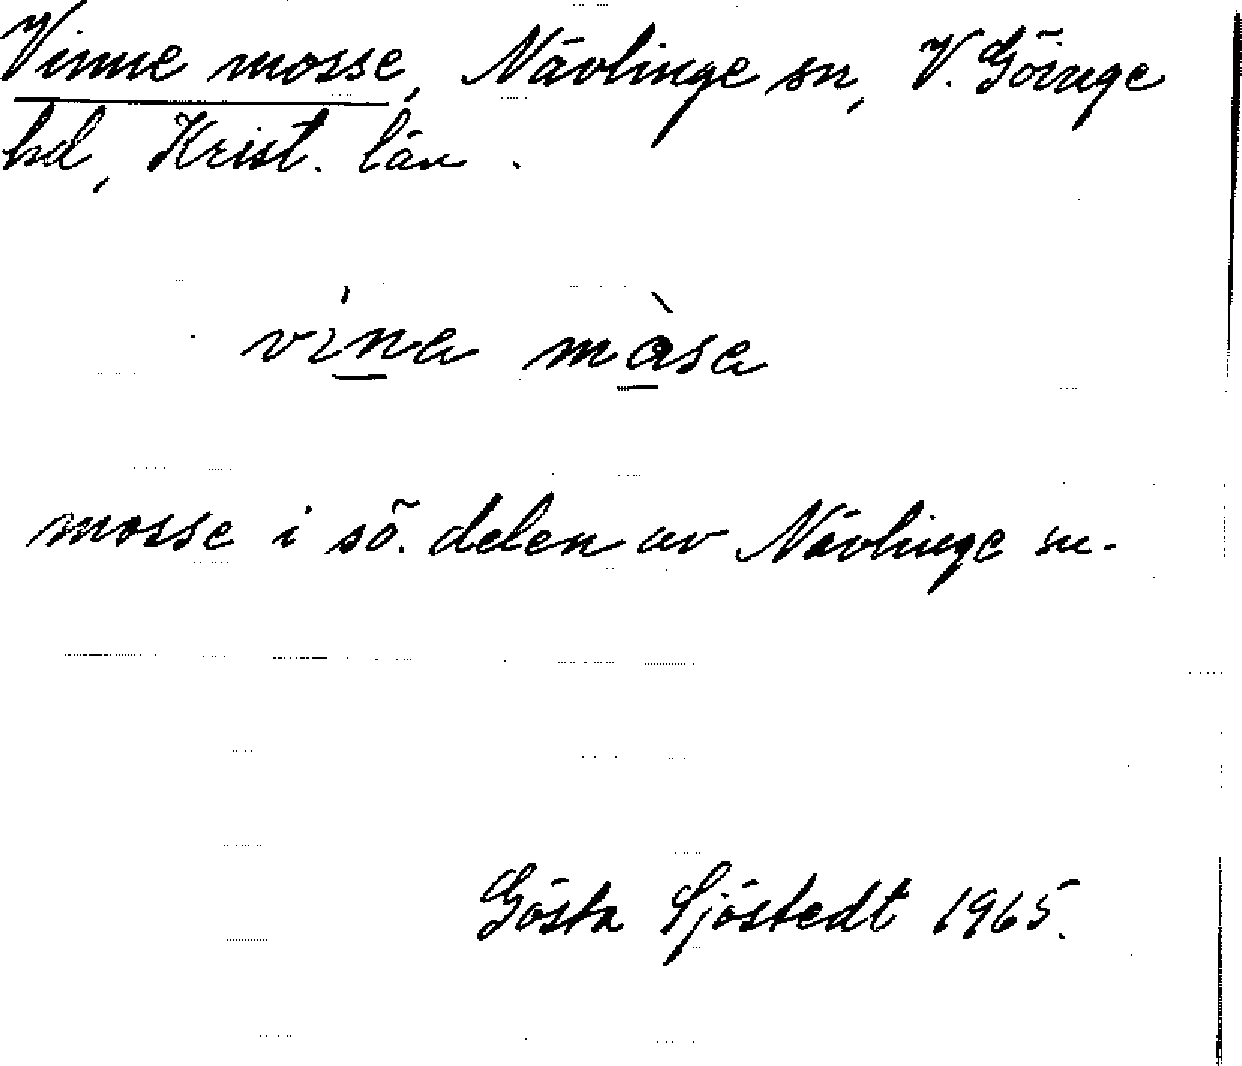 Vinne mosse, Nävlinge sn, V. Göinge
hd, Krist. län.
vìna màsa
mosse i sö. delen av Nävlinge sn.
Gösta Sjöstedt 1965.